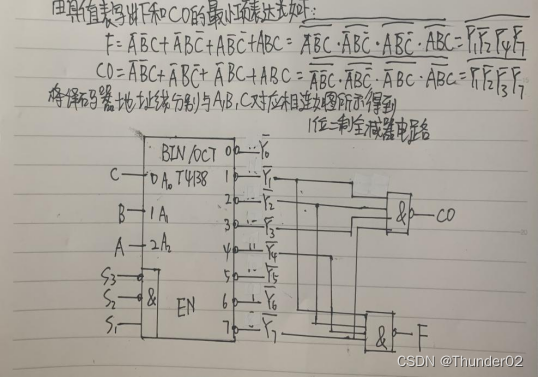 由真值表写出F和CO的最小项表达式如下:
F=A̅B̅C+A̅BC̅+AB̅C̅+ABC=A̅B̅C·A̅BC̅·AB̅C̅·ABC=Y̅₁Y̅₂Y̅₄Y̅₇
CO=A̅B̅C+A̅BC̅+A̅BC+ABC=A̅B̅C·A̅BC̅·A̅BC·ABC=Y̅₁Y̅₂Y̅₃Y̅₇
将译码器地址线分别与A,B,C对应相连如图所示得到
1位二制全减器电路
BIN/OCT
T4138
C 0 A₀
B 1 A₁
A 2 A₂
S₃
S₂
S₁
&
EN
0 Y̅₀
1 Y̅₁
2 Y̅₂
3 Y̅₃
4 Y̅₄
5 Y̅₅
6 Y̅₆
7 Y̅₇
& CO
& F
CSDN @Thunder02